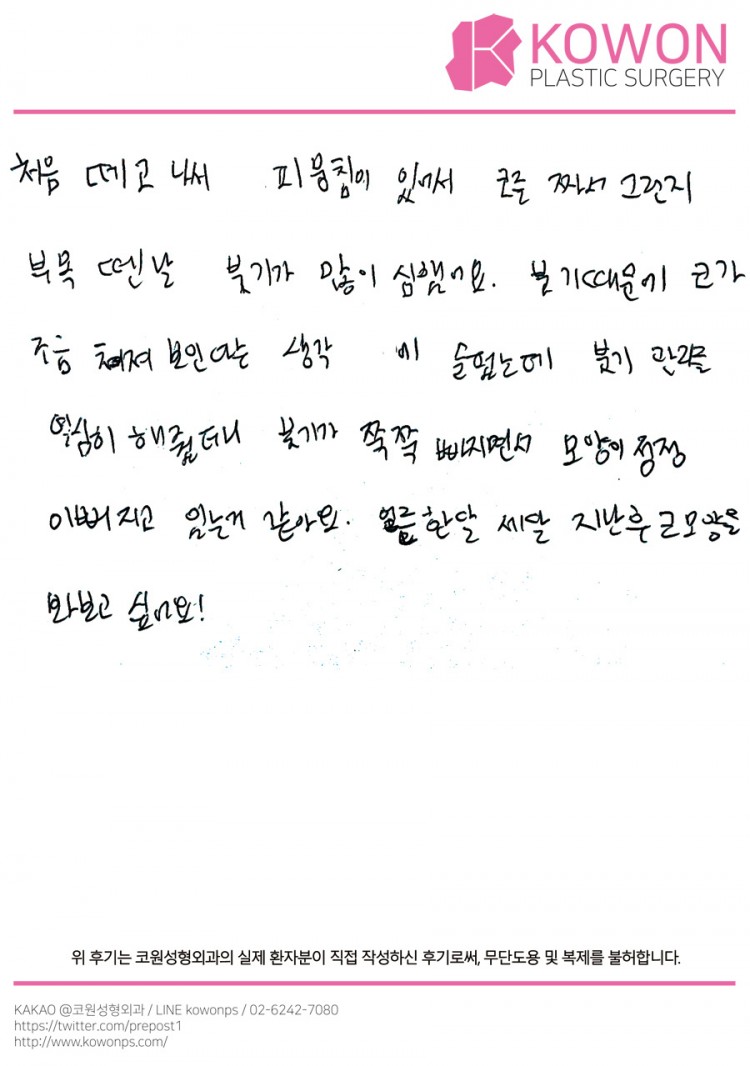 KOWON
PLASTIC SURGERY
처음 떼고 나서 피뭉침이 있어서 코를 짜서 그런지
부목 뗀날 붓기가 많이 심했어요. 붓기때문에 코가
조금 쳐져 보인다는 생각이 들었는데 붓기 관리를
열심히 해줬더니 붓기가 쭉쭉 빠지면서 모양이 점점
이뻐지고 있는거 같아요. 얼른 한달 세달 지난후 코모양을
봐보고 싶어요!
위 후기는 코원성형외과의 실제 환자분이 직접 작성하신 후기로써, 무단도용 및 복제를 불허합니다.
KAKAO @코원성형외과 / LINE kowonps / 02-6242-7080
https://twitter.com/prepost1
http://www.kowonps.com/